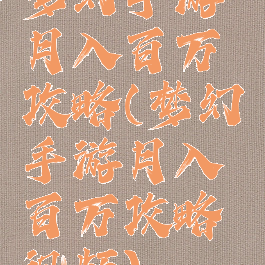 梦幻手游
月入百万
攻略(梦幻
手游月入
百万攻略
视频)